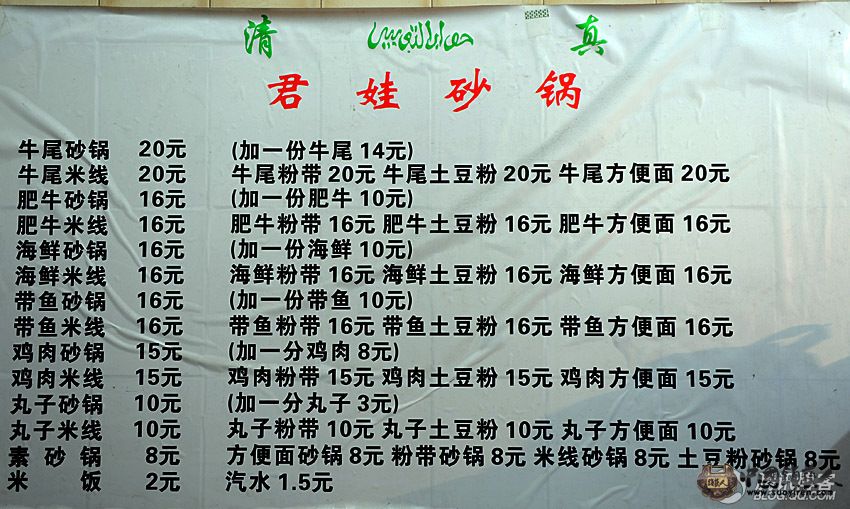 清 真
君娃砂锅
牛尾砂锅 20元 (加一份牛尾 14元)
牛尾米线 20元 牛尾粉带 20元 牛尾土豆粉 20元 牛尾方便面 20元
肥牛砂锅 16元 (加一份肥牛 10元)
肥牛米线 16元 肥牛粉带 16元 肥牛土豆粉 16元 肥牛方便面 16元
海鲜砂锅 16元 (加一份海鲜 10元)
海鲜米线 16元 海鲜粉带 16元 海鲜土豆粉 16元 海鲜方便面 16元
带鱼砂锅 16元 (加一份带鱼 10元)
带鱼米线 16元 带鱼粉带 16元 带鱼土豆粉 16元 带鱼方便面 16元
鸡肉砂锅 15元 (加一分鸡肉 8元)
鸡肉米线 15元 鸡肉粉带 15元 鸡肉土豆粉 15元 鸡肉方便面 15元
丸子砂锅 10元 (加一分丸子 3元)
丸子米线 10元 丸子粉带 10元 丸子土豆粉 10元 丸子方便面 10元
素砂锅 8元 方便面砂锅 8元 粉带砂锅 8元 米线砂锅 8元 土豆粉砂锅 8元
米饭 2元 汽水 1.5元
腾讯博客
BLOG.QQ.COM